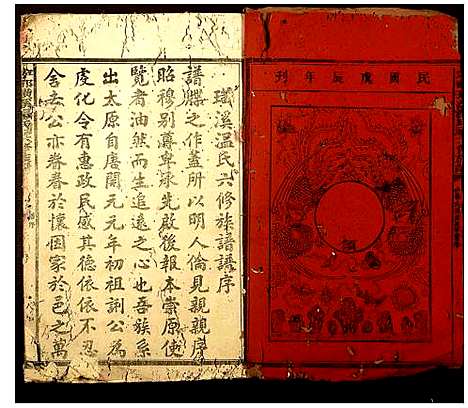 民國庚辰年刊
璜溪溫氏六修族譜譜序
譜牒之作蓋所以明人倫見親親序
昭穆別尊卑承先啟後報本崇原使
覽者油然而生追遠之心也吾族系
出太原自唐開元元年初祖訓公為
虔化令有惠政民感其德依依不忍
舍去公亦眷眷於懷因家於邑之萬